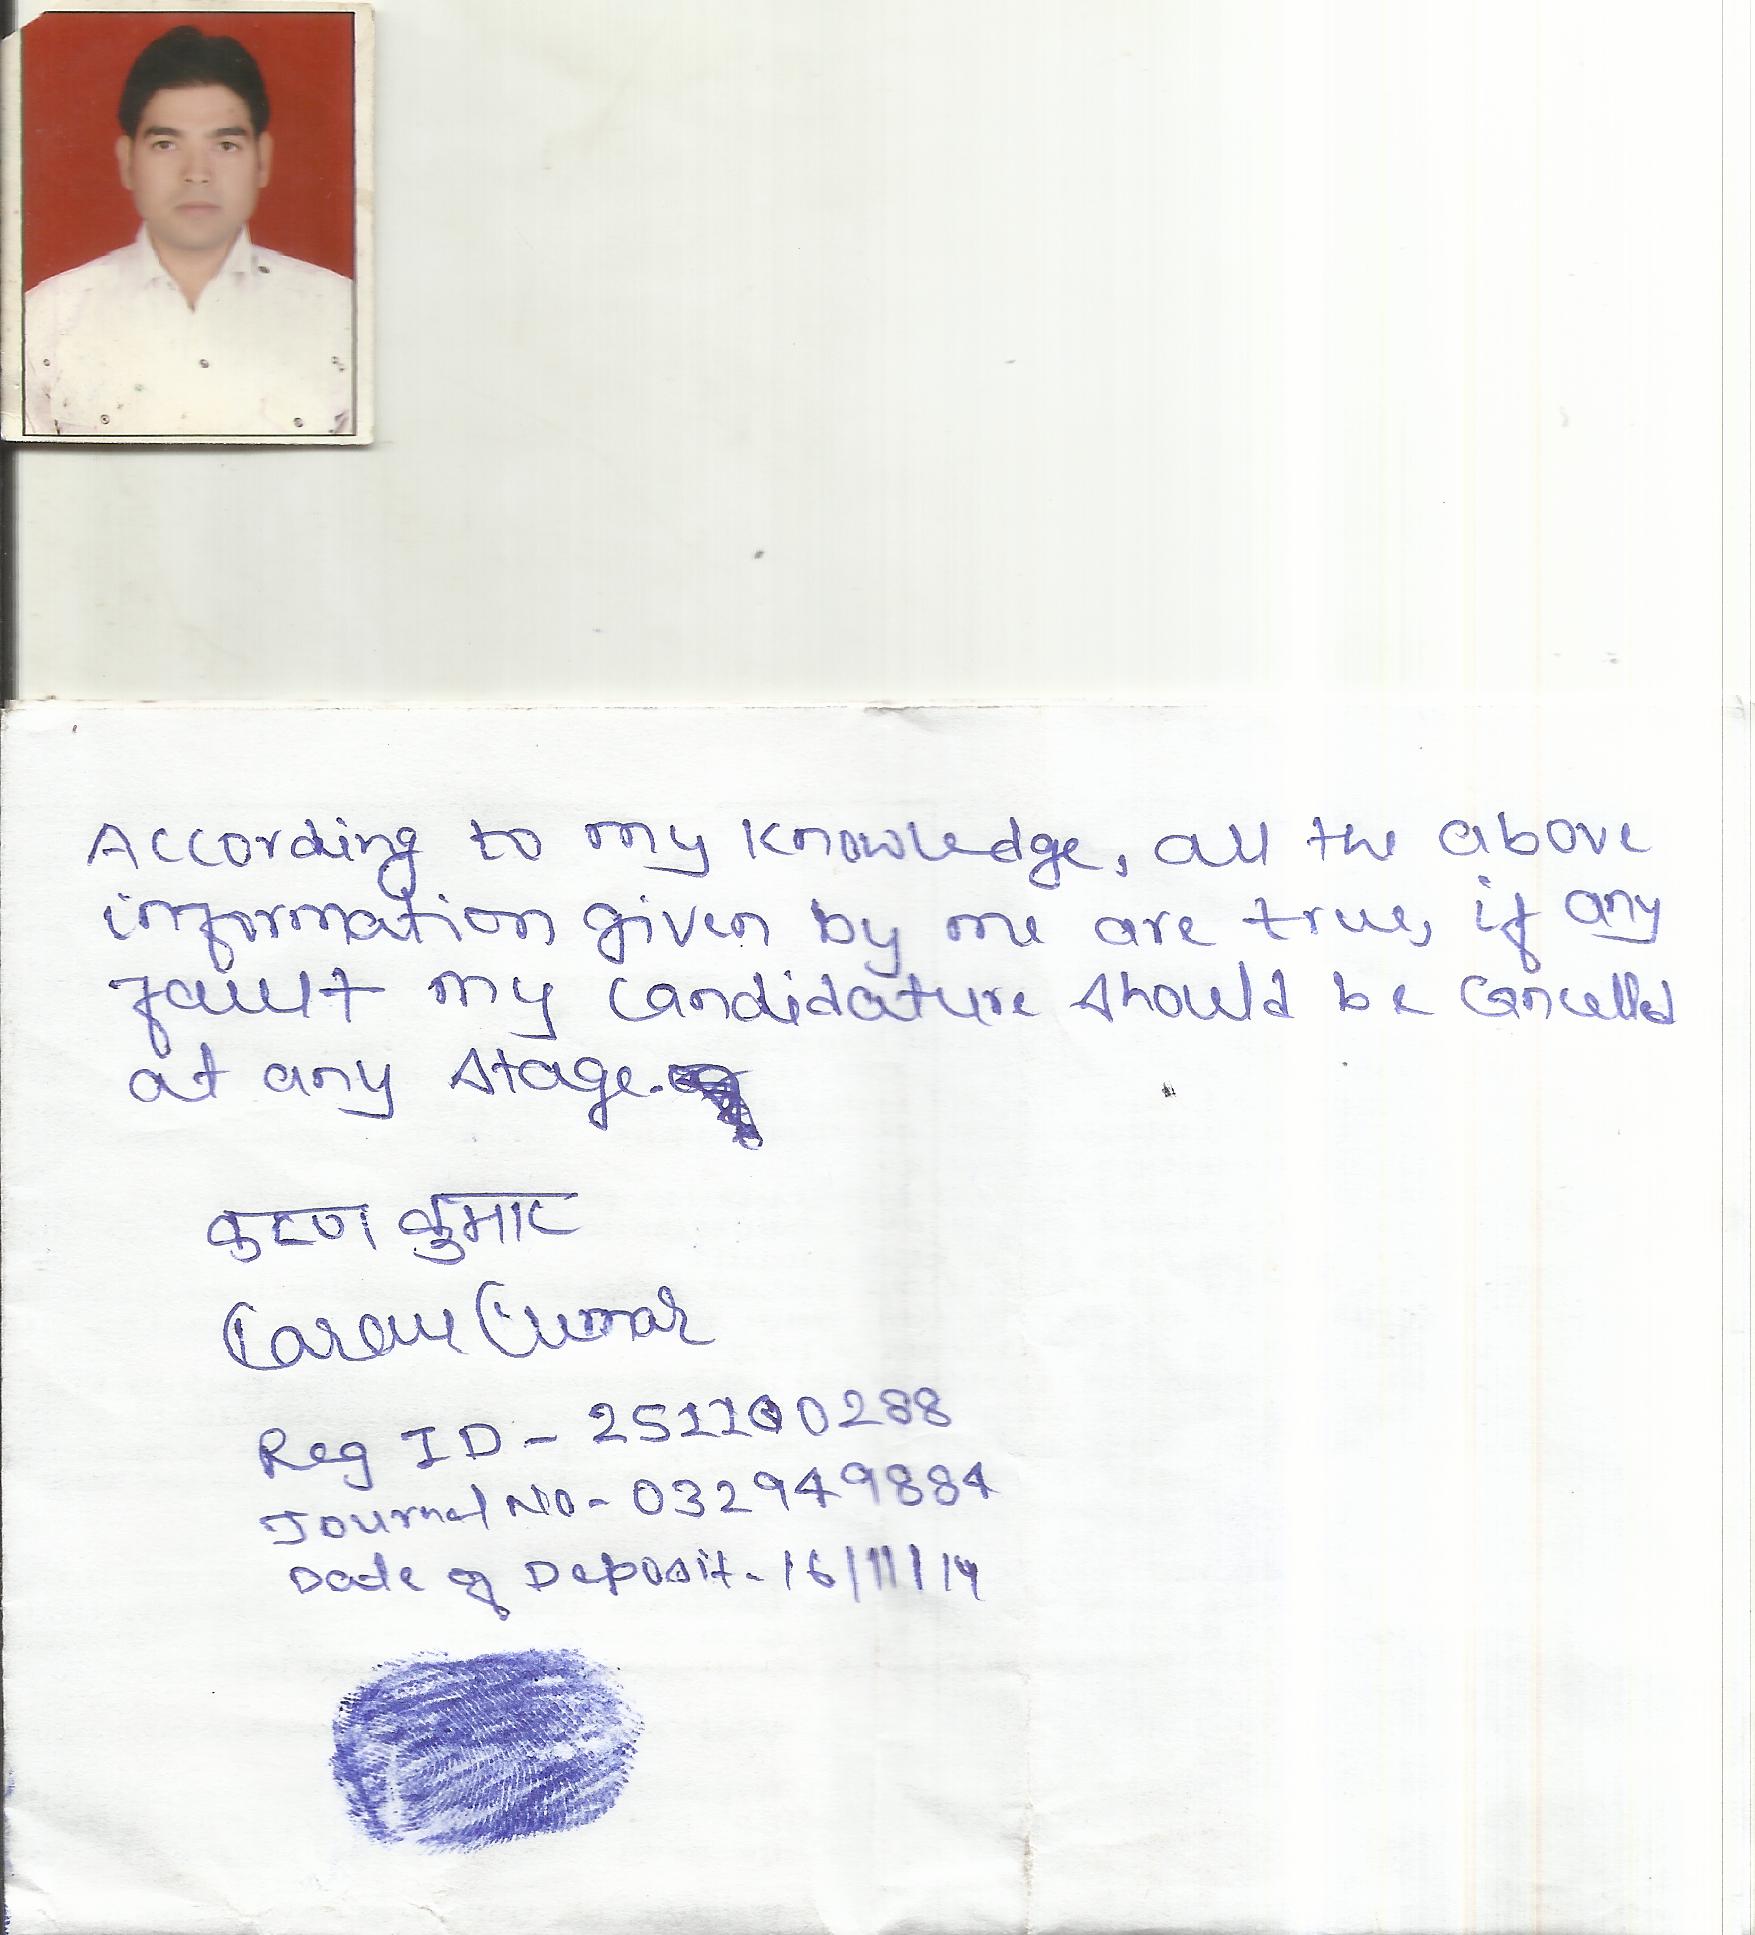 According to my knowledge, all the above
information given by me are true, if any
fault my candidature should be cancelled
at any stage.
करण कुमार
Karan Kumar
Reg ID - 251100288
Journal No - 032949884
Date of Deposit - 16/11/14